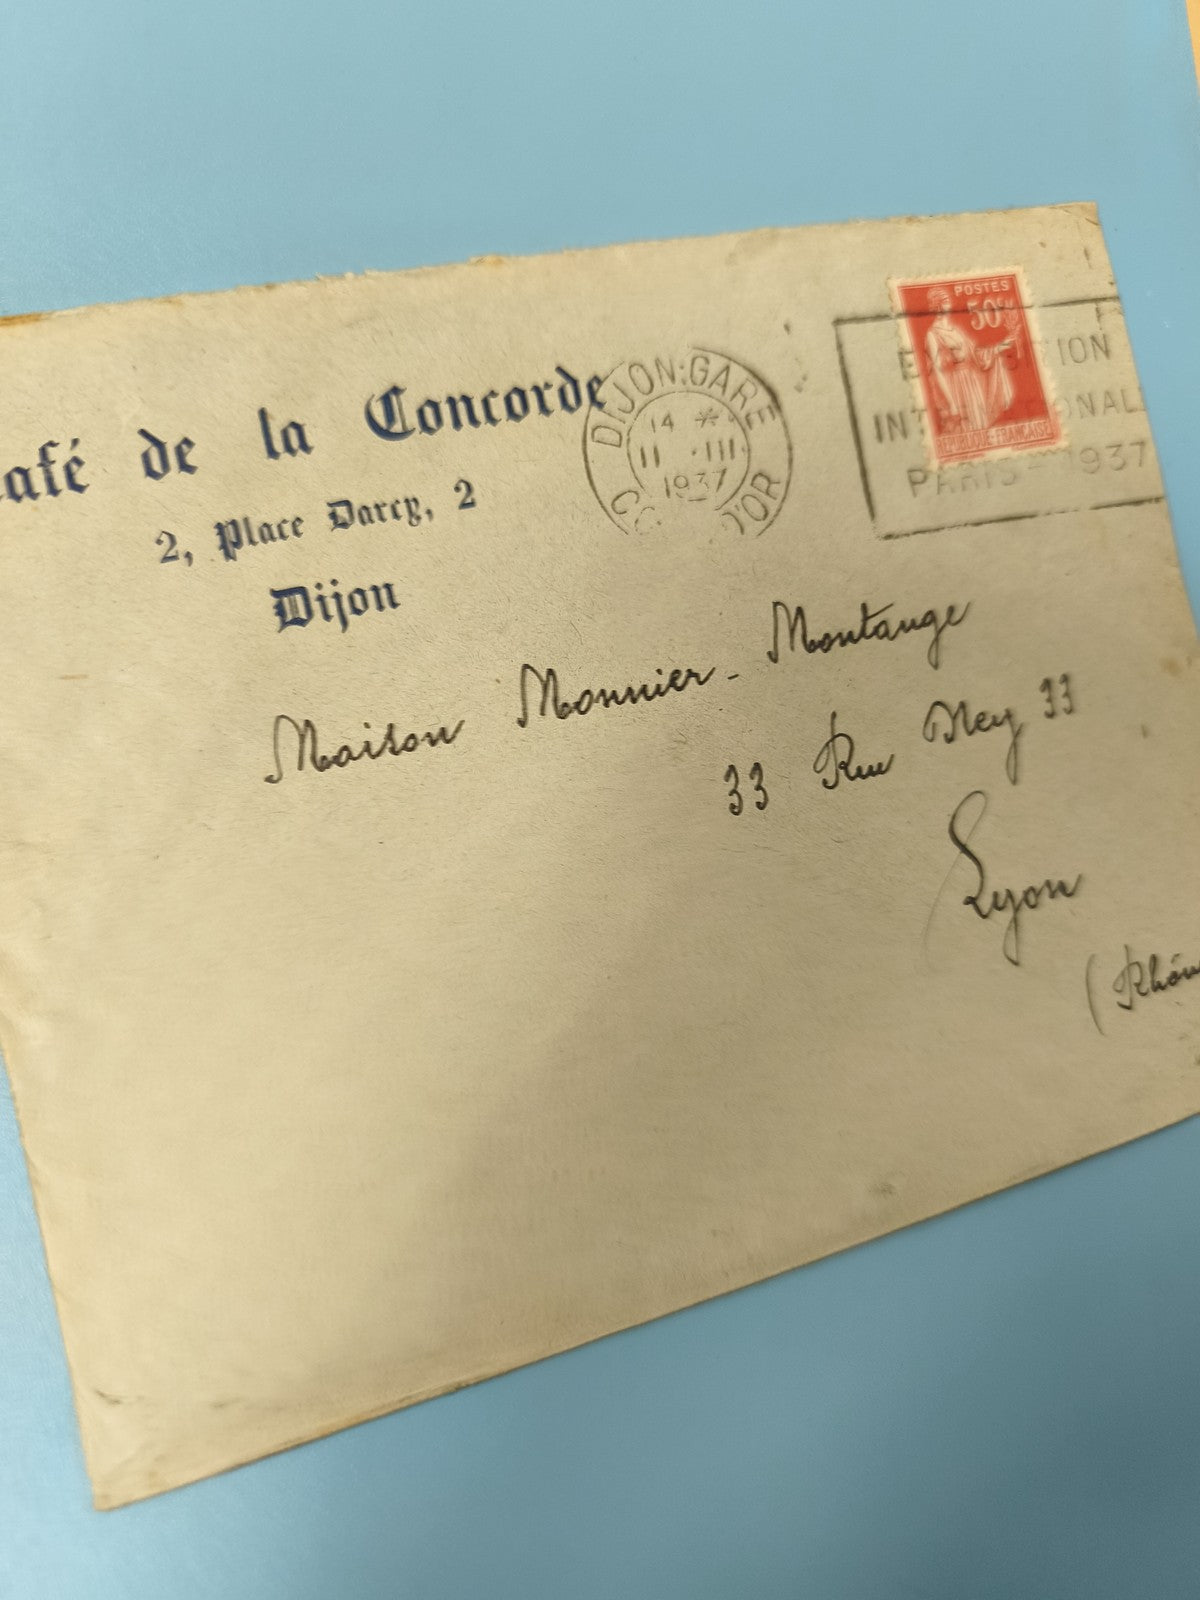 afé de la Concorde
2, Place Darcy, 2
Dijon
DIJON-GARE
14 *
11 ·III
1937
D'OR
POSTES
50c
REPUBLIQUE FRANÇAISE
EXPOSITION
INTERNATIONAL
PARIS - 1937
Maison Monnier-Montange
33 Rue Ney 33
Lyon
(Rhôn